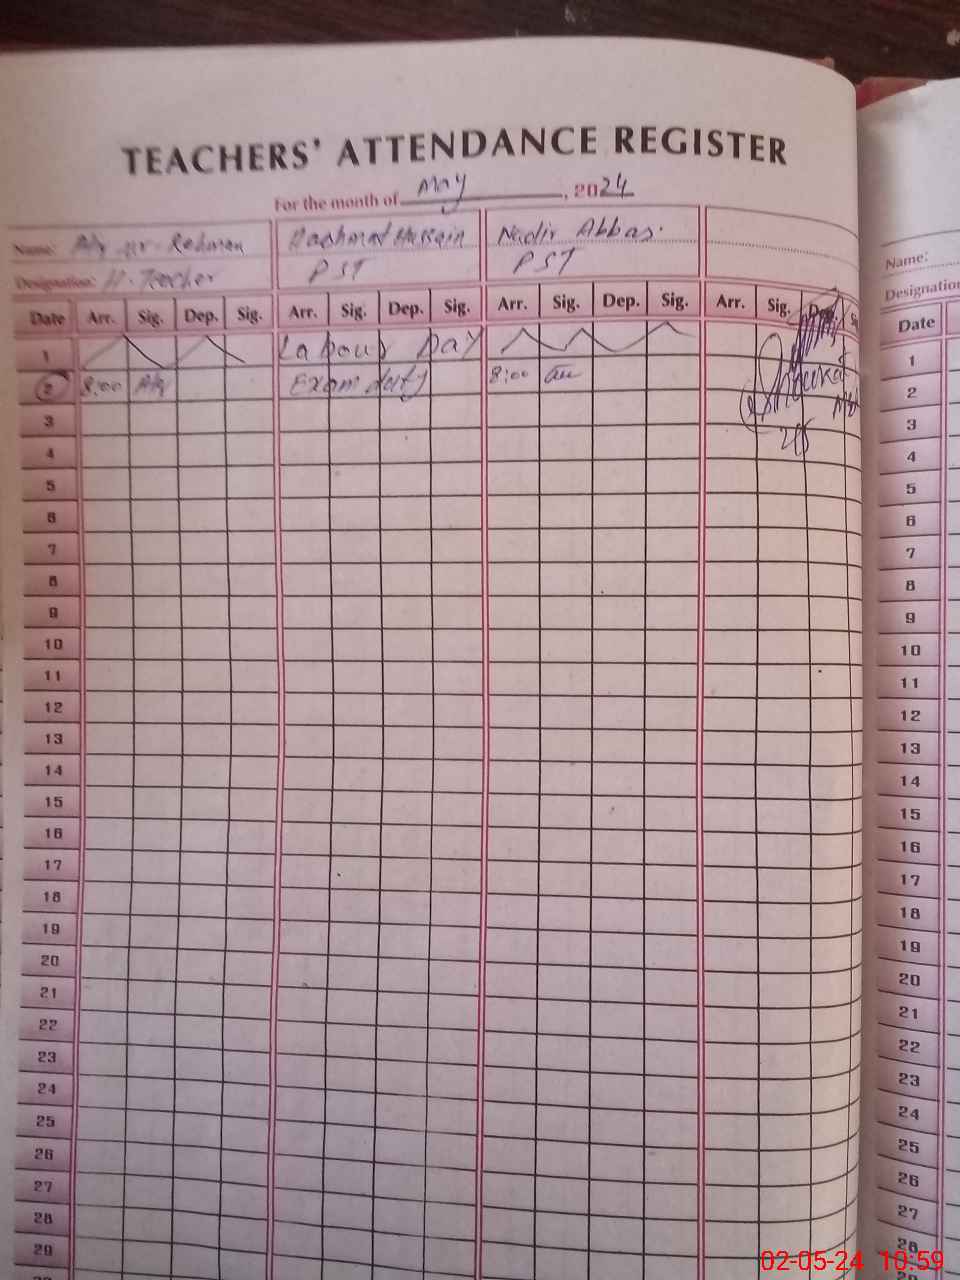 TEACHERS' ATTENDANCE REGISTER
For the month of May, 2024
Name: Rehman Hussain Nadir Abbas. Name:
Designation: H. Teacher PST PST Designation
Date Arr. Sig. Dep. Sig. Arr. Sig. Dep. Sig. Arr. Sig. Dep. Sig. Arr. Sig. Dep. Date
1 Labour Day 1
2 8:00 Exam duty 8:00 2
3 3
4 4
5 5
6 6
7 7
8 8
9 9
10 10
11 11
12 12
13 13
14 14
15 15
16 16
17 17
18 18
19 19
20 20
21 21
22 22
23 23
24 24
25 25
26 26
27 27
28 28
29
02-05-24 10:59